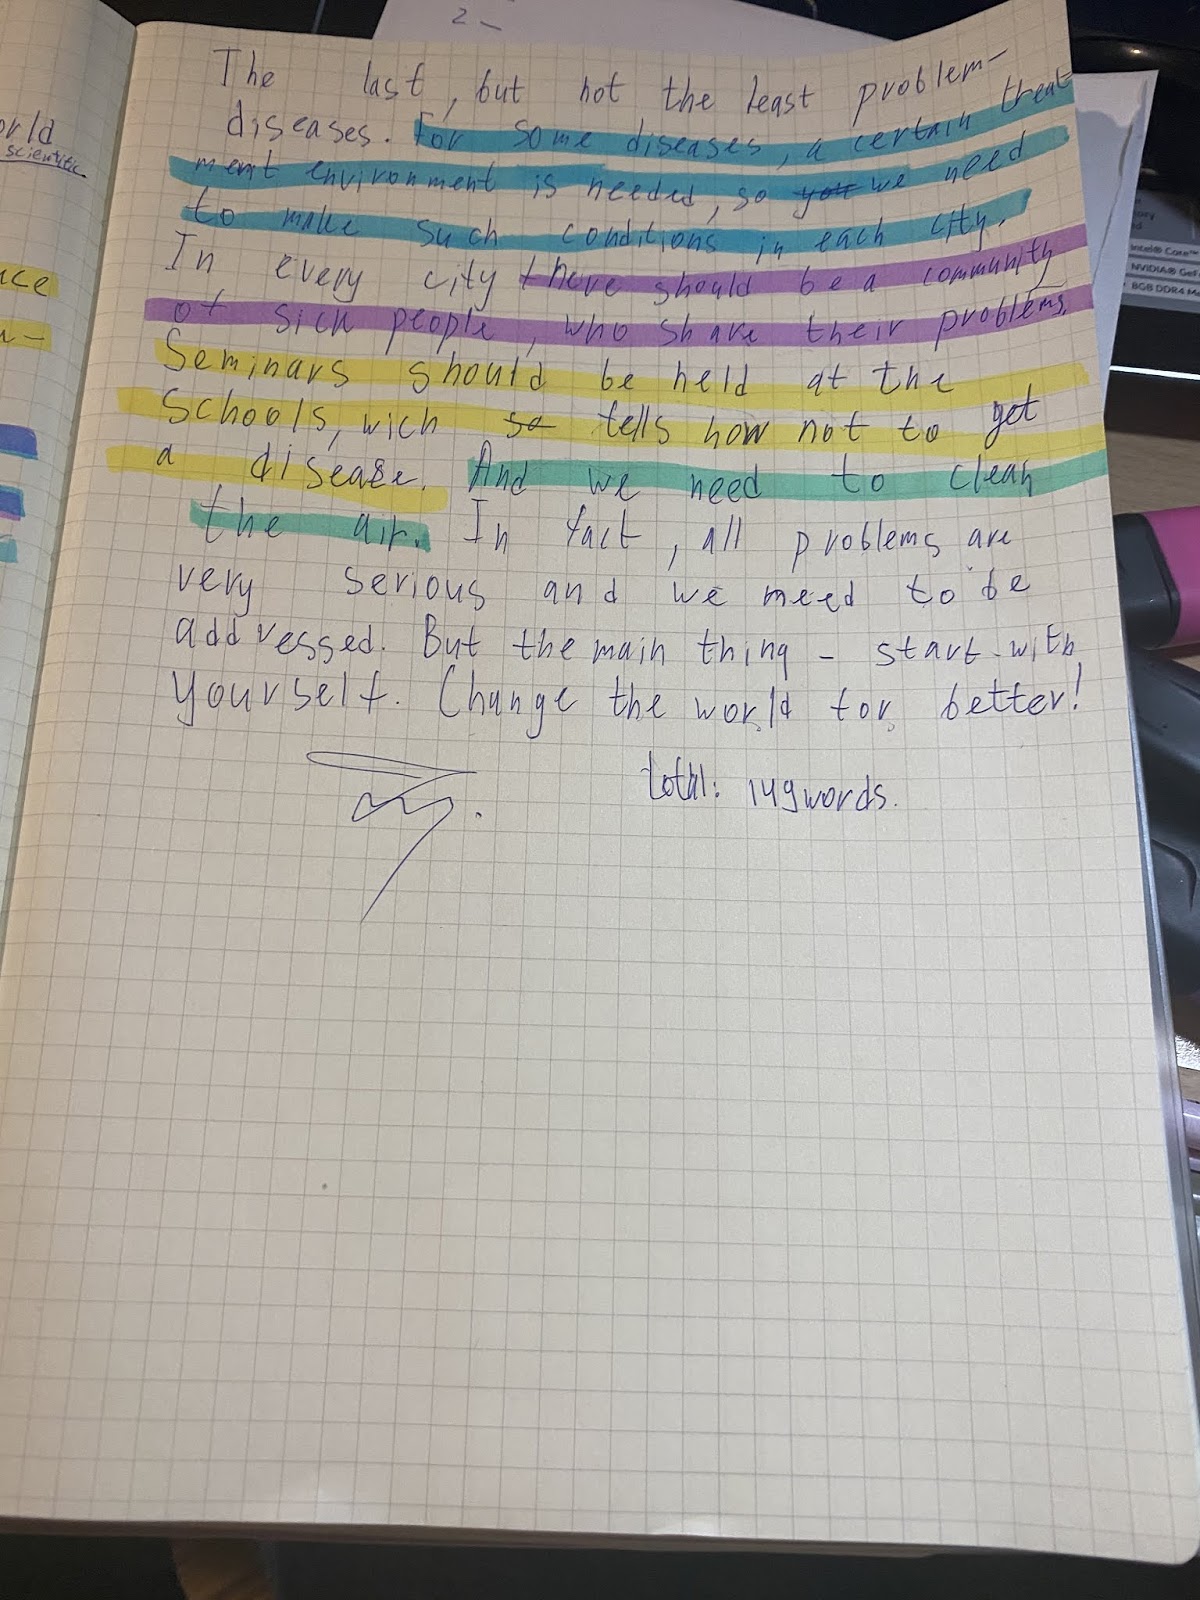 2 –
The last, but not the least problem–
diseases. For some diseases, a certain treat-
ment environment is needed, so you we need
to make such conditions in each city.
In every city there should be a community
of sick people, who share their problems.
Seminars should be held at the
schools, wich so tells how not to get
a disease. And we need to clean
the air. In fact, all problems are
very serious and we need to be
addressed. But the main thing – start with
yourself. Change the world for better!
total: 149 words.
orld
scientific
ace
n–
Intel® Core™
NVIDIA® GeF
8GB DDR4 M